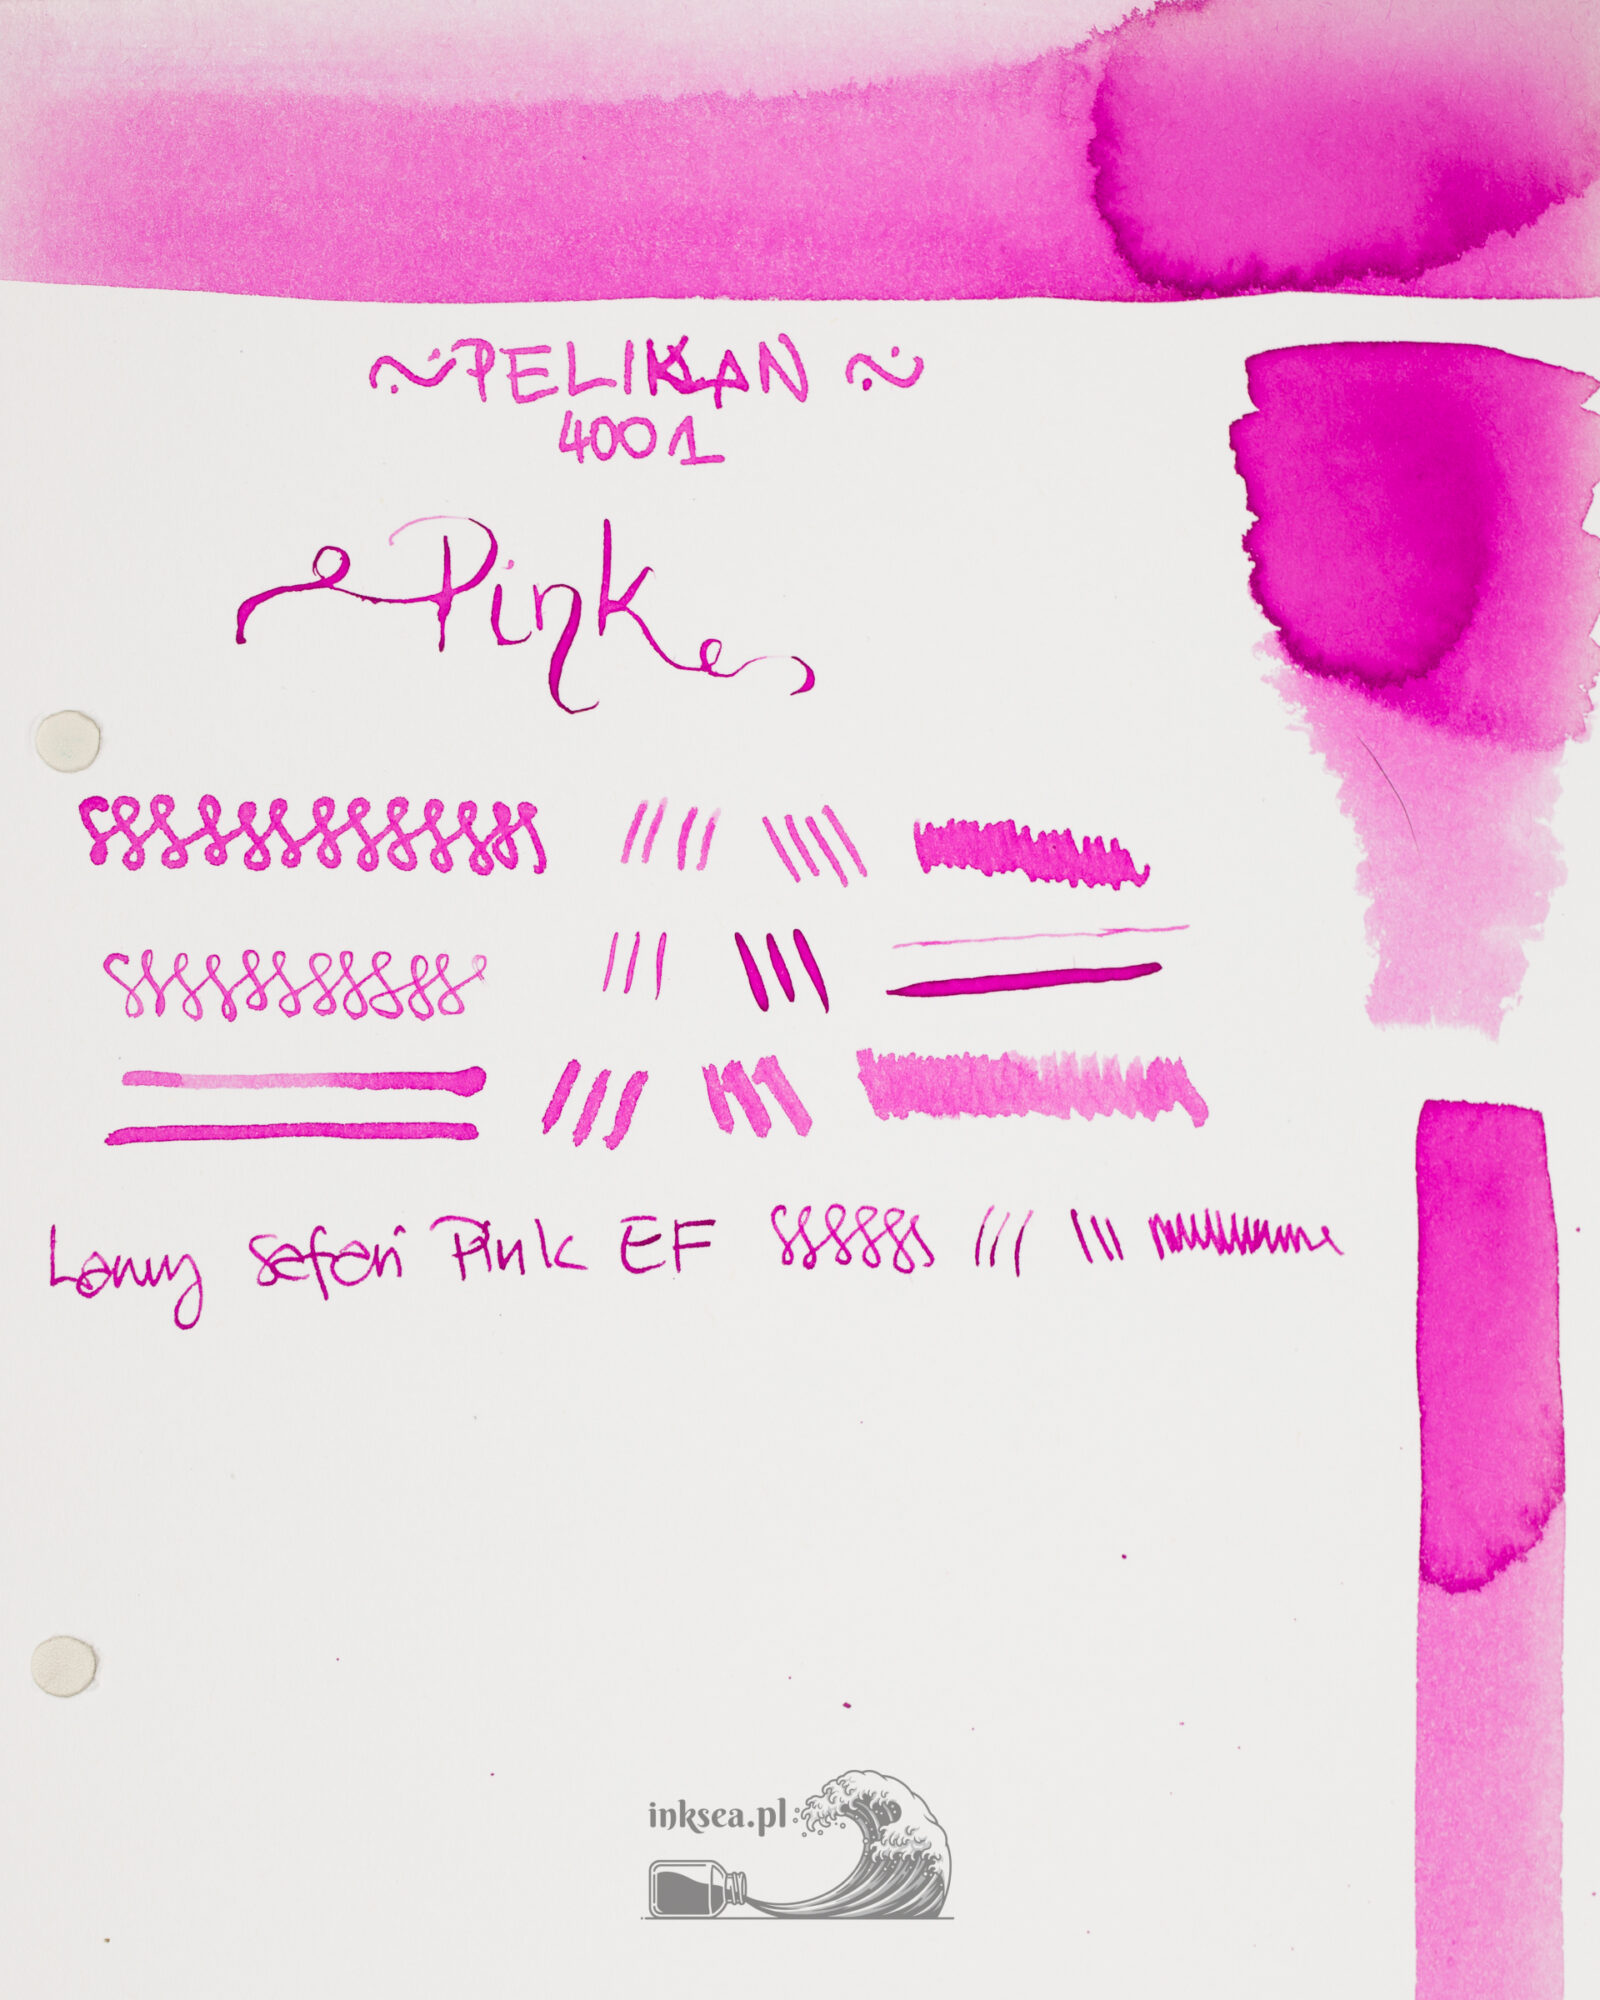 ~PELIKAN~
4001
Pink
Lamy Safari Pink EF
inksea.pl